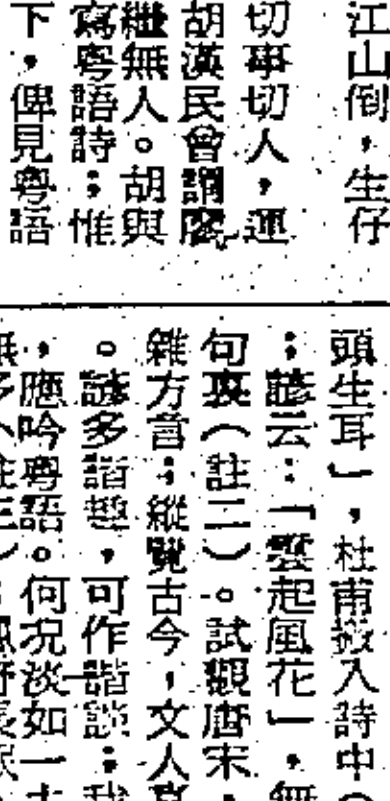 江山倒,生仔
切事切人,運
胡漢民曾謂
繼無人。胡與
寫粵語詩:惟
下,俾見粵語
頭生耳」,杜甫搬入詩中(
:諺云:「雲起風花」,無
句裏(註二)。試觀唐宋,
雜方言;縱覽古今,文人
。談多諧趣,可作諧談;我
,應吟粵語。何況淡如一